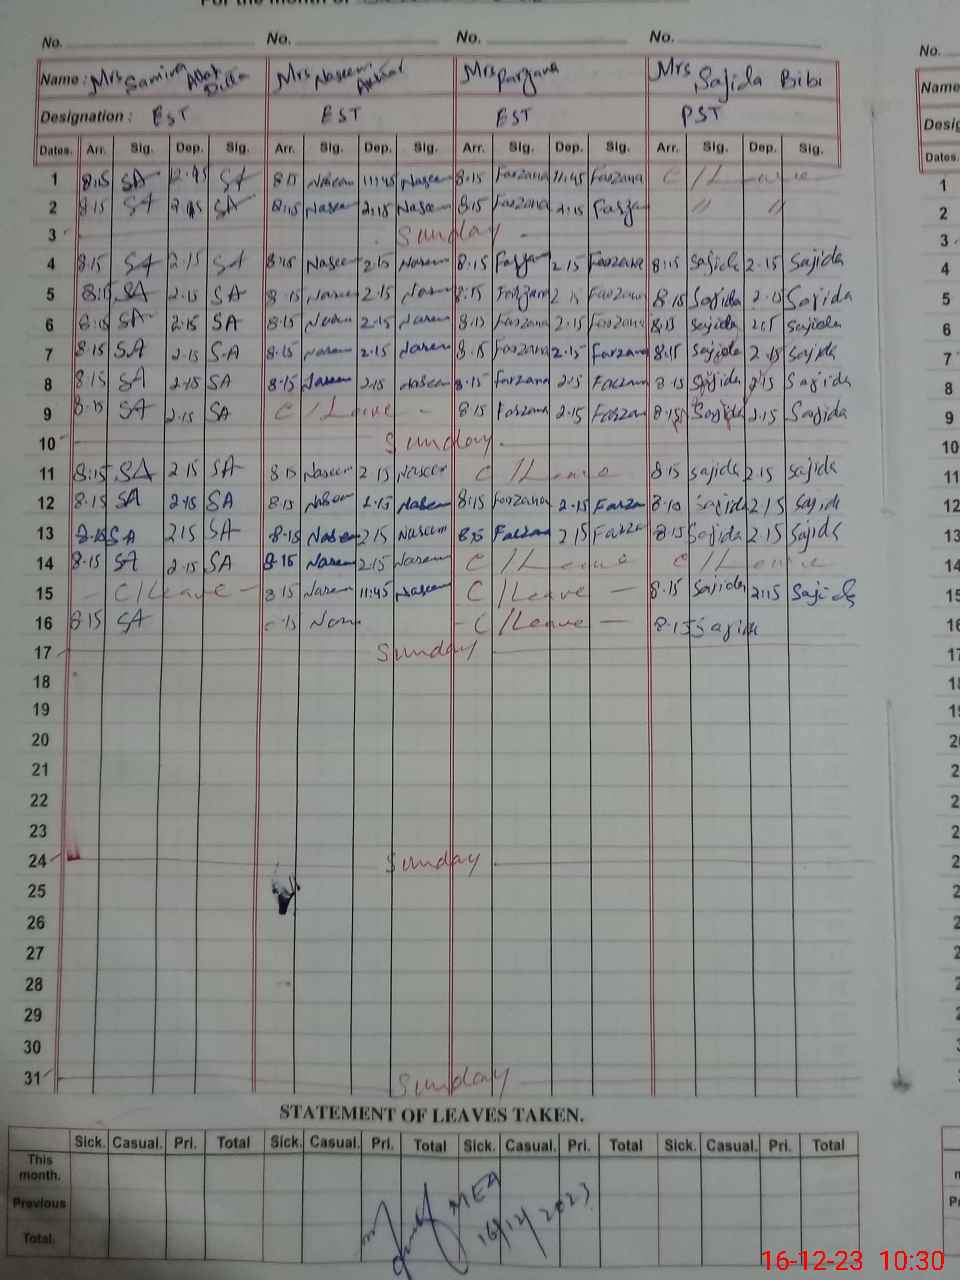 For the month of
No. No. No. No. No.
Name : Mrs Samina Allah Ditta Mrs Naseem Akhtar Mrs Farzana Mrs Sajida Bibi Name
Designation : EST EST EST PST
Dates. Arr. Sig. Dep. Sig. Arr. Sig. Dep. Sig. Arr. Sig. Dep. Sig. Arr. Sig. Dep. Sig. Dates.
1 8.15 SA 12.45 SA 8.15 Naseem 11:45 Naseem 8.15 Farzana 11.45 Farzana C/Leave 1
2 8.15 SA 2.15 SA 8.15 Naseem 2.15 Naseem 8.15 Farzana 2.15 Farzana " " 2
3 Sunday 3
4 8.15 SA 2.15 SA 8.15 Naseem 2.15 Naseem 8.15 Farzana 2.15 Farzana 8.15 Sajida 2.15 Sajida 4
5 8.15 SA 2.15 SA 8.15 Naseem 2.15 Naseem 8.15 Farzana 2.15 Farzana 8.15 Sajida 2.15 Sajida 5
6 8.15 SA 2.15 SA 8.15 Naseem 2.15 Naseem 8.15 Farzana 2.15 Farzana 8.15 Sajida 2.15 Sajida 6
7 8.15 SA 2.15 SA 8.15 Naseem 2.15 Naseem 8.15 Farzana 2.15 Farzana 8.15 Sajida 2.15 Sajida 7
8 8.15 SA 2.15 SA 8.15 Naseem 2.15 Naseem 8.15 Farzana 2.15 Farzana 8.15 Sajida 2.15 Sajida 8
9 8.15 SA 2.15 SA C/Leave - 8.15 Farzana 2.15 Farzana 8.15 Sajida 2.15 Sajida 9
10 Sunday 10
11 8.15 SA 2.15 SA 8.15 Naseem 2.15 Naseem C/Leave 8.15 Sajida 2.15 Sajida 11
12 8.15 SA 2.15 SA 8.15 Naseem 2.15 Naseem 8.15 Farzana 2.15 Farzana 8.15 Sajida 2.15 Sajida 12
13 8.15 SA 2.15 SA 8.15 Naseem 2.15 Naseem 8.15 Farzana 2.15 Farzana 8.15 Sajida 2.15 Sajida 13
14 8.15 SA 2.15 SA 8.15 Naseem 2.15 Naseem C/Leave C/Leave 14
15 - C/Leave - 8.15 Naseem 11:45 Naseem C/Leave - 8.15 Sajida 2:15 Sajida 15
16 8.15 SA 8.15 Nase - C/Leave - 8.15 Sajida 16
17 Sunday 17
18 18
19 19
20
21
22
23
24 Sunday
25
26
27
28
29
30
31 Sunday
STATEMENT OF LEAVES TAKEN.
Sick. Casual. Pri. Total Sick. Casual. Pri. Total Sick. Casual. Pri. Total Sick. Casual. Pri. Total
This month.
Previous
Total.
MEA
16/12/2023
16-12-23 10:30